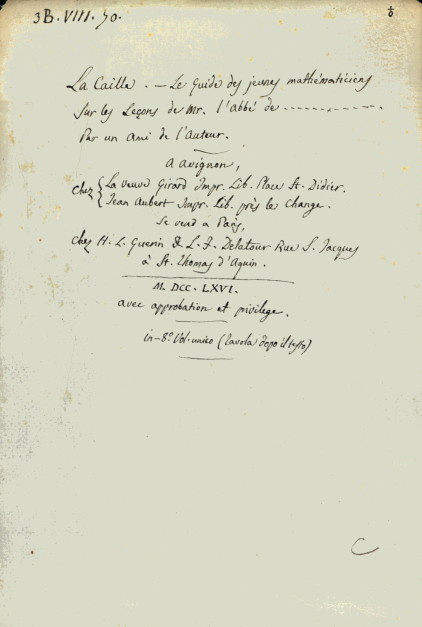 3B.VIII.50.
La Caille. — Le Guide des jeunes mathématiciens
sur les Leçons de Mr. l'Abbé de ----------
Par un Ami de l'Auteur.
a avignon,
Chez { La veuve Girard Impr. Lib. Place St. Didier.
Jean Aubert Impr. Lib. près le Change.
Se vend a Paris,
chez H. L. Guerin & L. F. Delatour Rue S. Jacques
à St. Thomas d'Aquin.
M. DCC. LXVI.
avec approbation et privilege.
in-8.º Vol. unico (tavola dopo il testo)
C